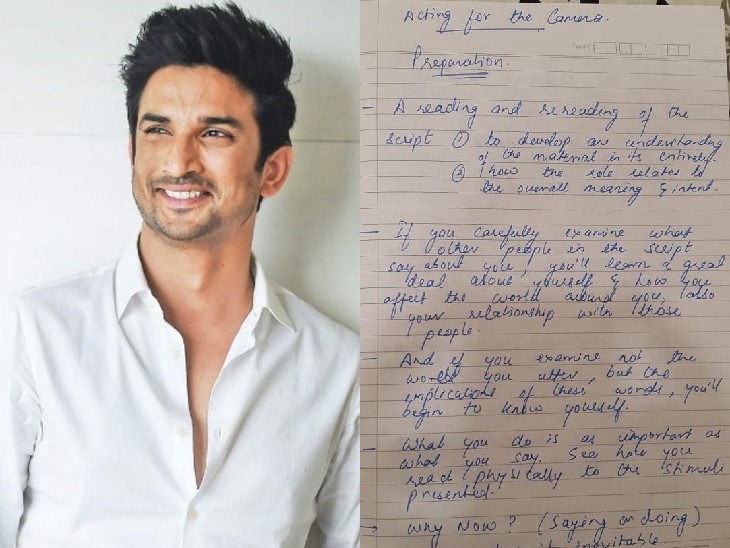 Acting for the Camera.
DATE
Preparation.
- A reading and rereading of the
script ① to develop an understanding
of the material in its entirety.
② how the role relates to
the overall meaning & intent.
- If you carefully examine what
other people in the script
say about you, you'll learn a great
deal about yourself & how you
affect the world around you, also
your relationship with those
people.
- And if you examine not the
words you utter, but the
implications of these words, you'll
begin to know yourself.
- What you do is as important as
what you say. See how you
react physically to the stimuli
presented.
→ Why Now? (Saying or doing)
it inevitable.